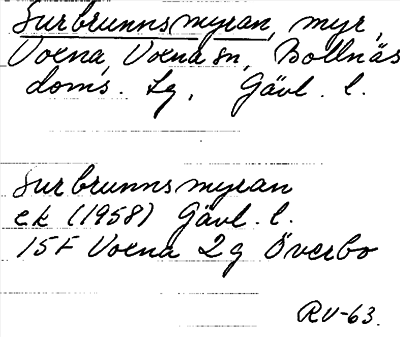 Surbrunnsmyran, myr,
Voxna, Voxna sn, Bollnäs
doms. Lg, Gävl. l.
Surbrunnsmyran
ek (1958) Gävl. l.
15F Voxna 2g Överbo
RV-63.